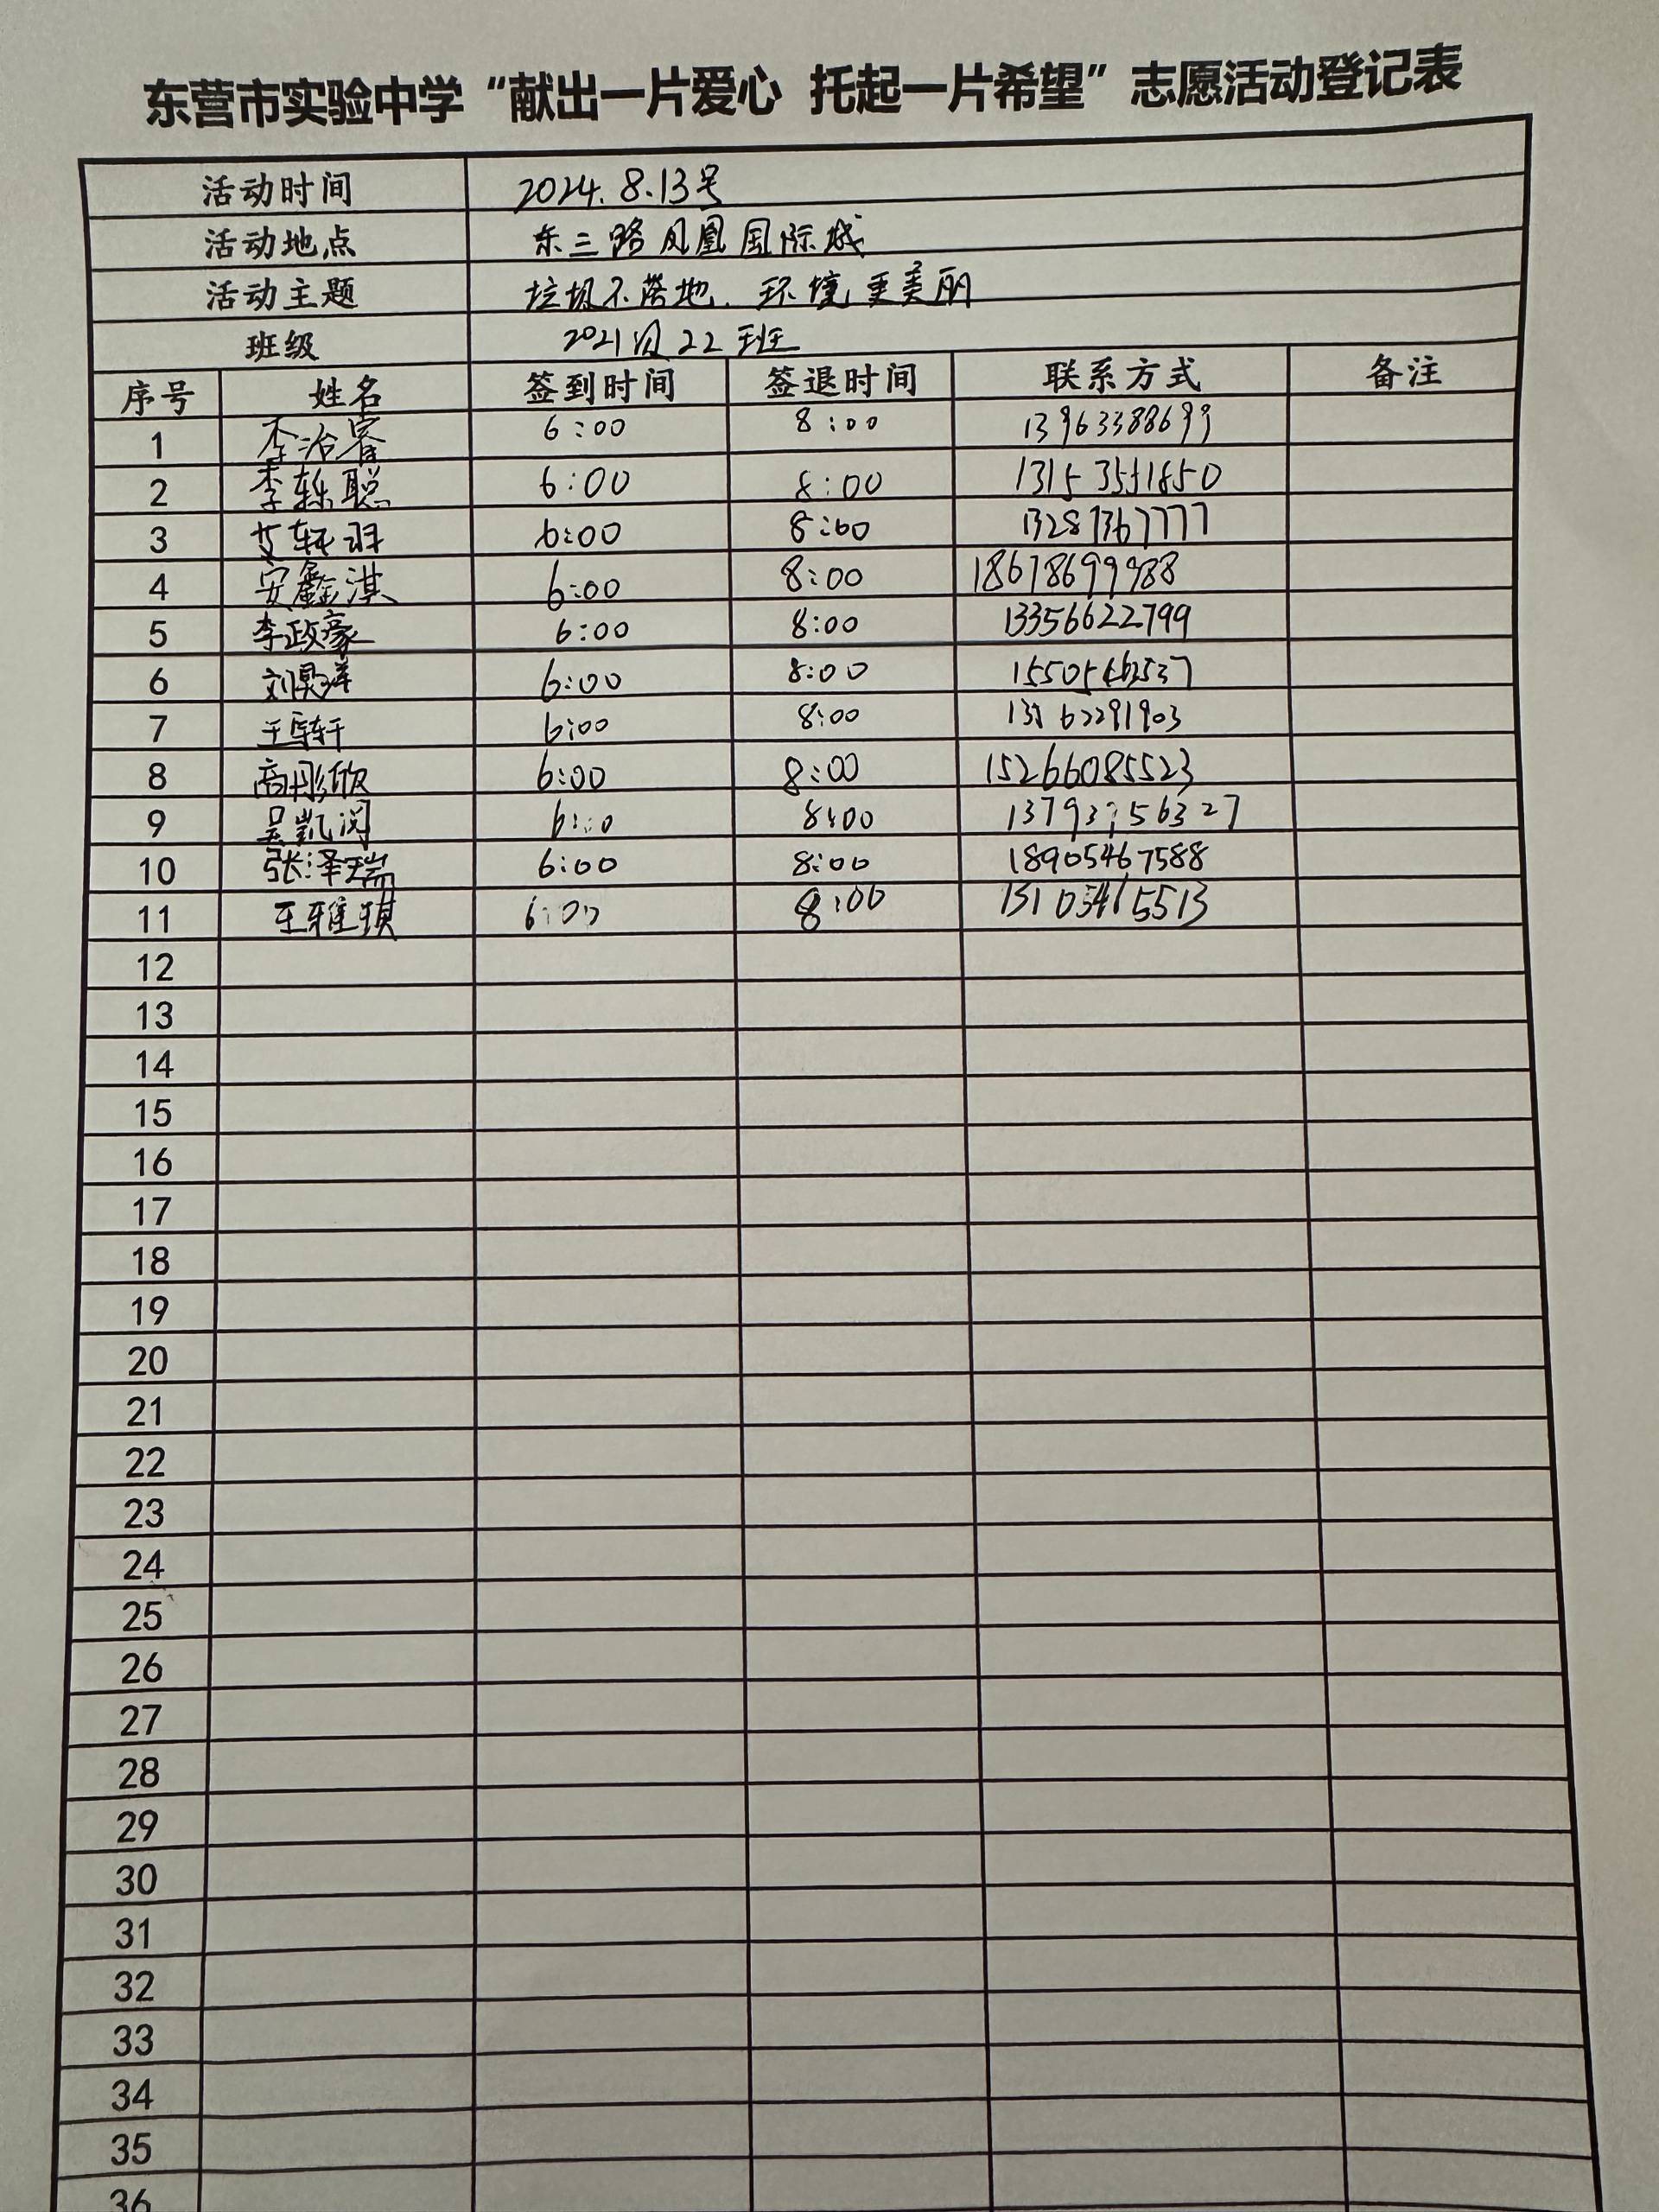 东营市实验中学“献出一片爱心 托起一片希望”志愿活动登记表
活动时间 2024.8.13号
活动地点 东三路凤凰国际城
活动主题 垃圾不落地.环境更美丽
班级 2021级22班
序号 姓名 签到时间 签退时间 联系方式 备注
1 李治睿 6:00 8:00 13963388699
2 李轶聪 6:00 8:00
3 艾轩羽 6:00 8:00 13287367777
4 安鑫淇 6:00 8:00 18678699988
5 李政豪 6:00 8:00 13356622799
6 刘昊洋 6:00 8:00
7 6:00 8:00
8 商彤欣 6:00 8:00 15266085523
9 吴凯润 8:00
10 张泽瑞 6:00 8:00 18905467588
11 王雅琪 6:00 8:00
12
13
14
15
16
17
18
19
20
21
22
23
24
25
26
27
28
29
30
31
32
33
34
35
36